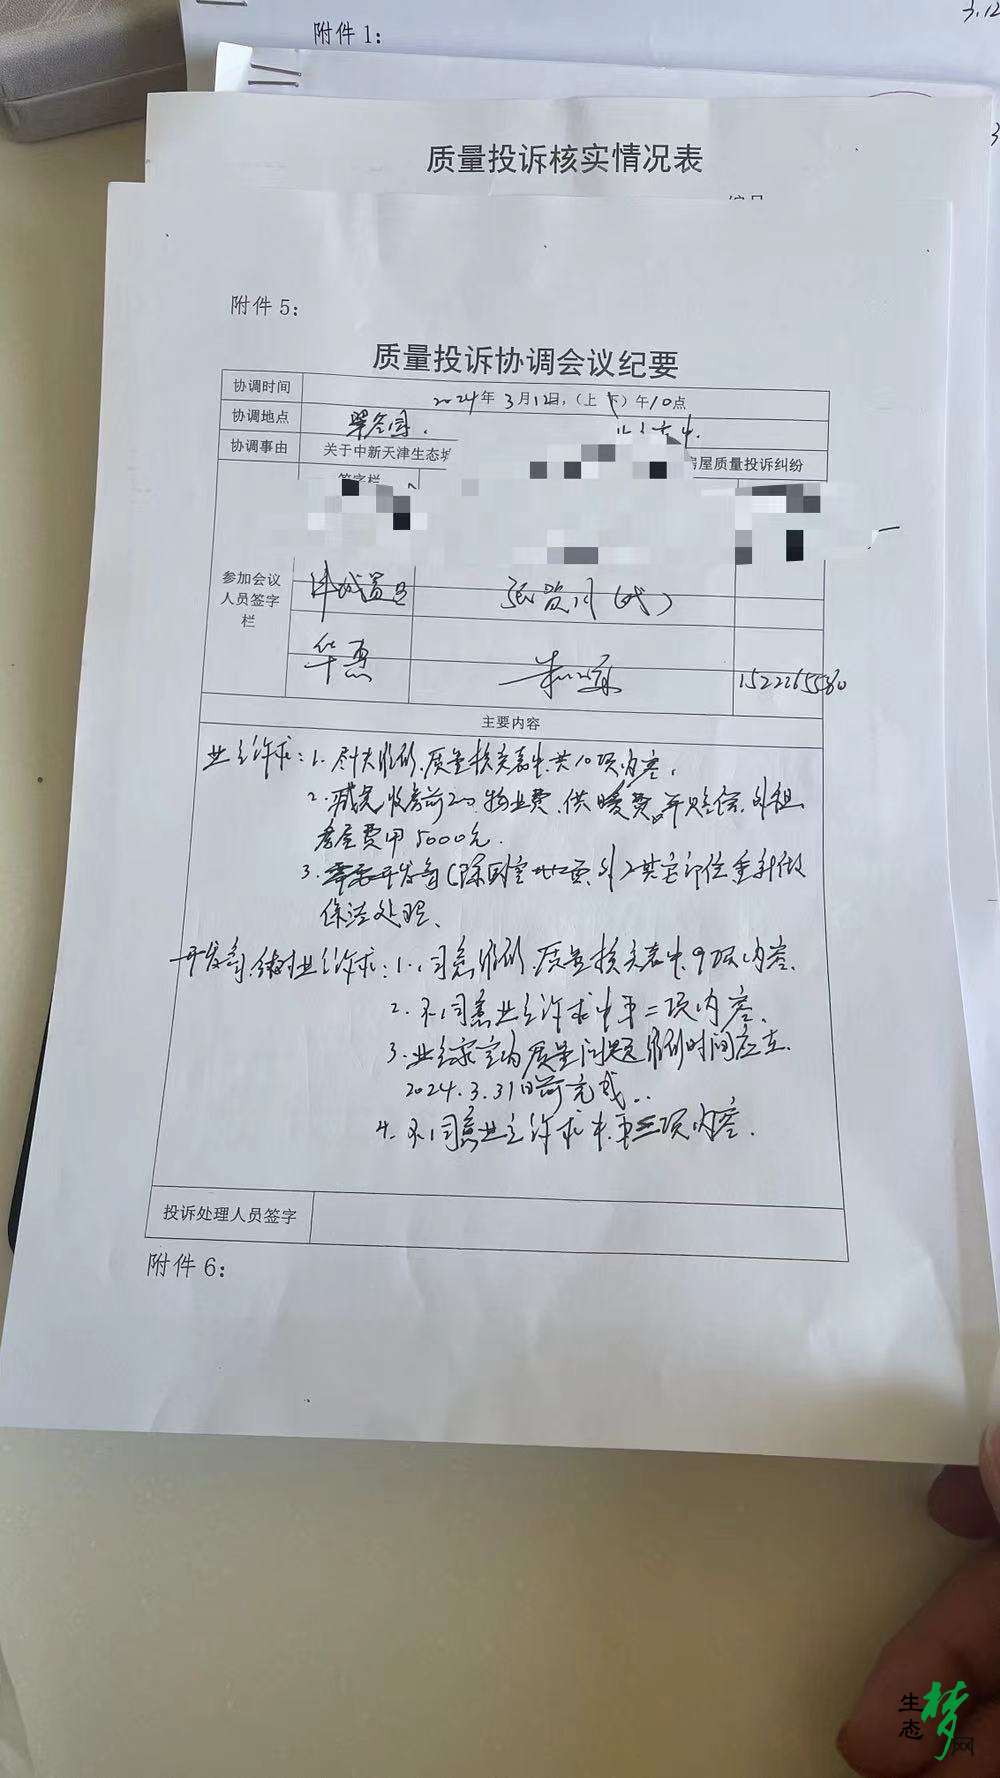 附件1:
3.12
质量投诉核实情况表
附件5:
质量投诉协调会议纪要
协调时间 2024年3月12日,(上下)午10点
协调地点
协调事由 关于中新天津生态城 房屋质量投诉纠纷
签字栏
参加会议人员签字栏
津城置业 (代)
华惠
主要内容
业主诉求:1.尽快维修.质量核实表中.共10项内容.
2.减免收房前 物业费.供暖费.并赔偿.外租
房屋费用5000元.
3. 开发商(除卧室 外)其它部位重新做
保洁处理.
开发商.针对业主诉求:1.同意维修.质量核实表中.9项内容.
2.不同意业主诉求中第二项内容.
3.业主家室内质量问题维修时间应在.
2024.3.31日前完成..
4.不同意业主诉求中.第三项内容.
投诉处理人员签字
附件6:
生态梦网